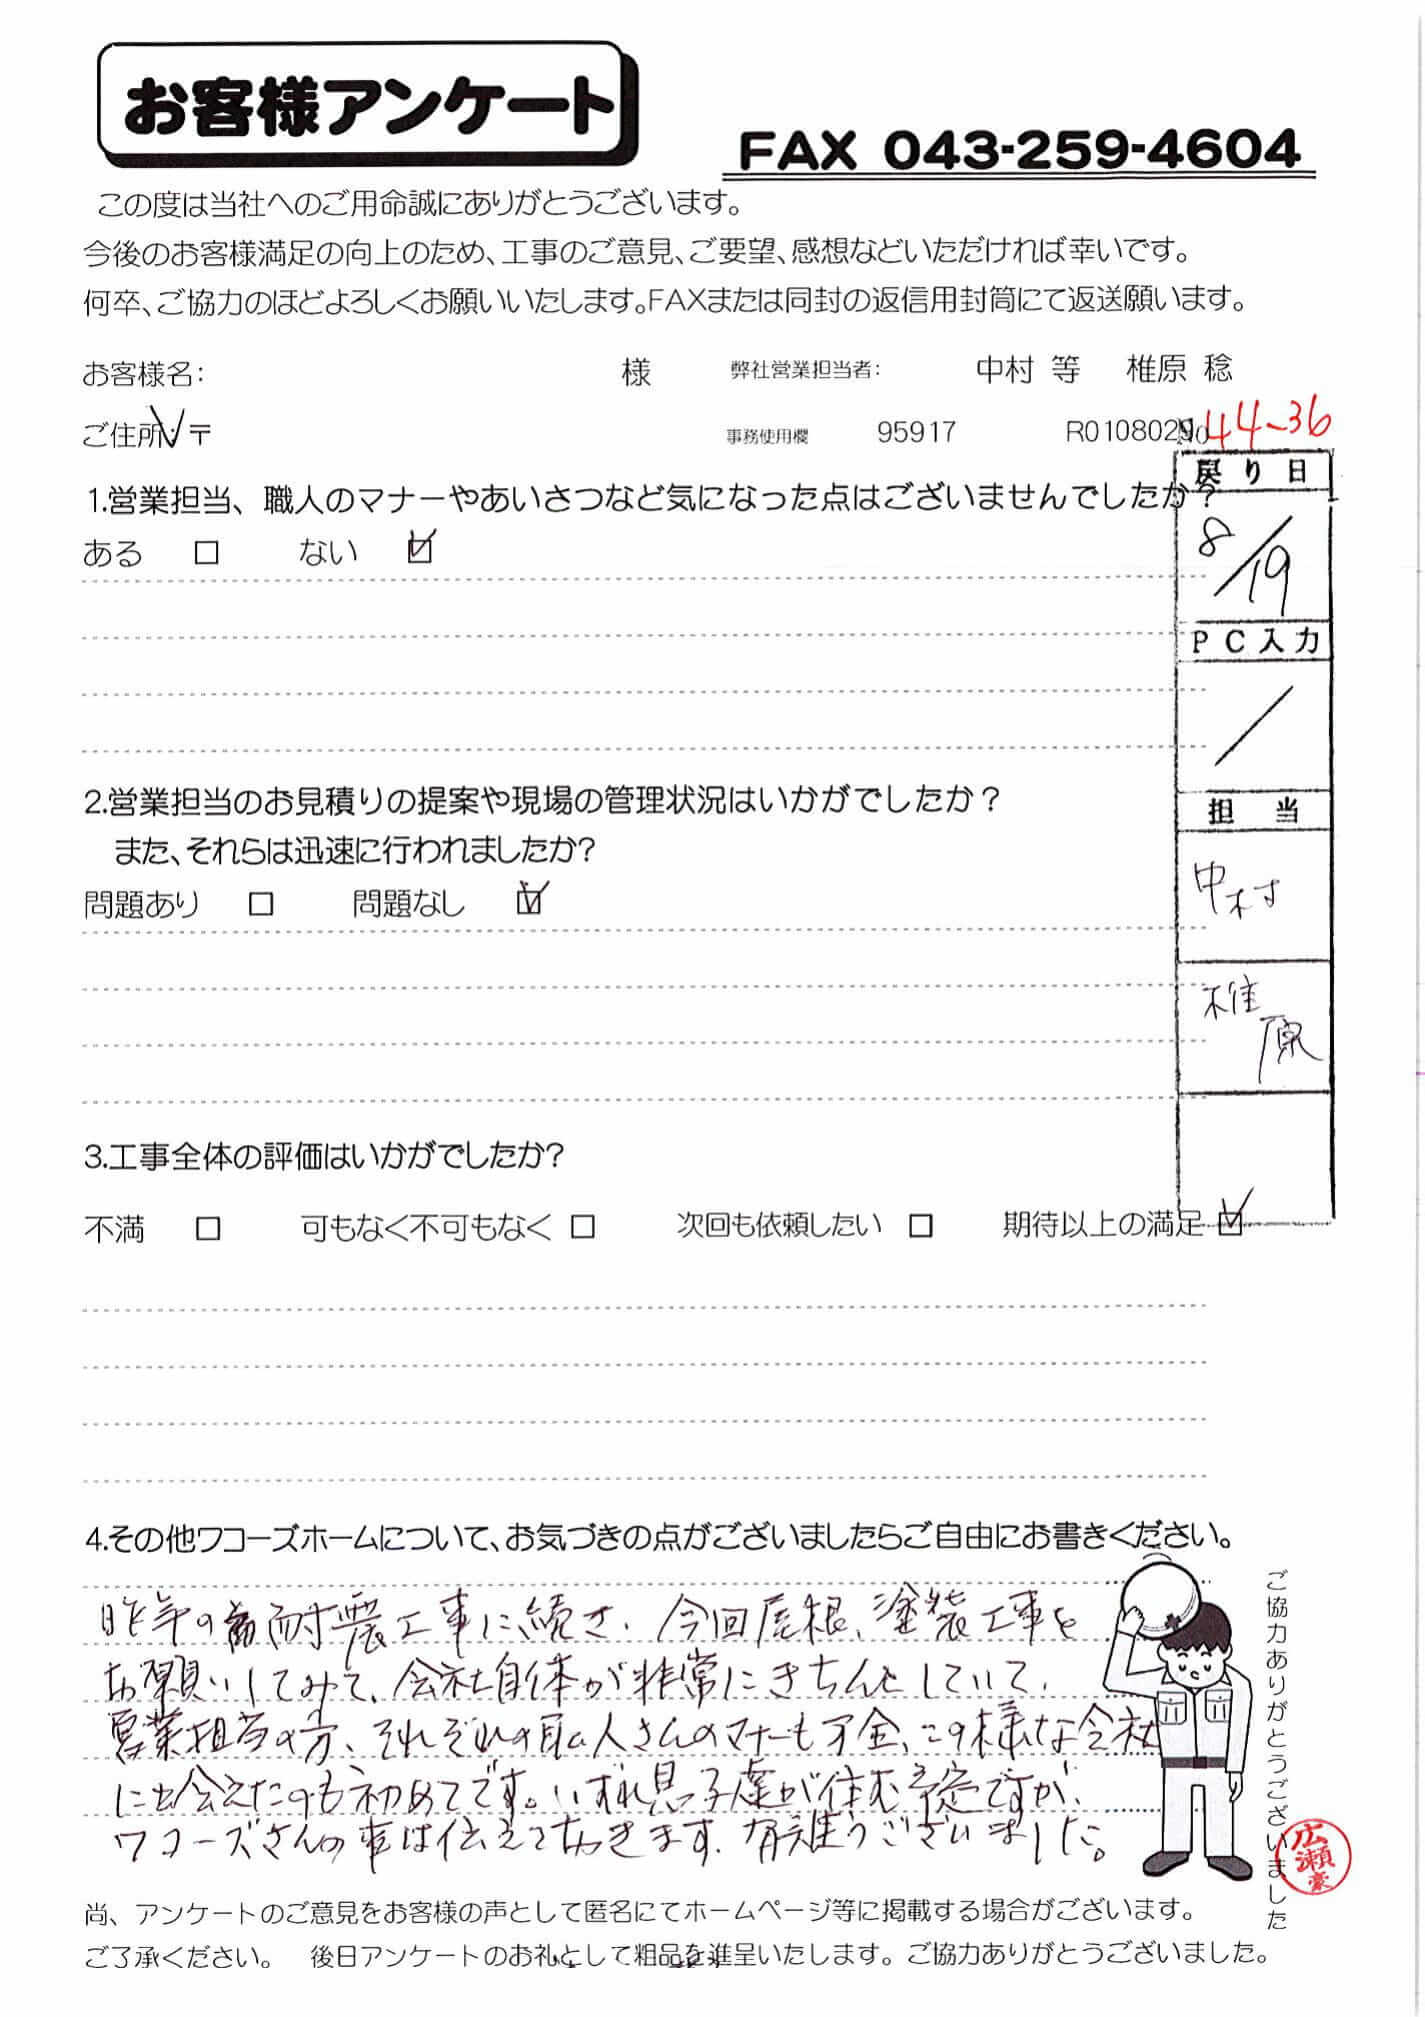 お客様アンケート
FAX 043-259-4604
この度は当社へのご用命誠にありがとうございます。
今後のお客様満足の向上のため、工事のご意見、ご要望、感想などいただければ幸いです。
何卒、ご協力のほどよろしくお願いいたします。FAXまたは同封の返信用封筒にて返送願います。
お客様名: 様 弊社営業担当者: 中村 等 椎原 稔
ご住所: 〒 事務使用欄 95917 R0108029 No 44-36
戻り日
8/19
PC入力
/
担当
中村
椎原
1.営業担当、職人のマナーやあいさつなど気になった点はございませんでしたか?
ある □ ない ☑
2.営業担当のお見積りの提案や現場の管理状況はいかがでしたか?
また、それらは迅速に行われましたか?
問題あり □ 問題なし ☑
3.工事全体の評価はいかがでしたか?
不満 □ 可もなく不可もなく □ 次回も依頼したい □ 期待以上の満足 ☑
4.その他ワコーズホームについて、お気づきの点がございましたらご自由にお書きください。
昨年の耐震工事に続き、今回屋根、塗装工事を
お願いしてみて、会社自体が非常にきちんとしていて、
営業担当の方、それぞれの職人さんのマナーも万全、この様な会社
に出会えたのも初めてです。いずれ息子達が住む予定ですが、
ワコーズさんの事は伝えておきます。有難うございました。
ご協力ありがとうございました
広瀬豪
尚、アンケートのご意見をお客様の声として匿名にてホームページ等に掲載する場合がございます。
ご了承ください。 後日アンケートのお礼として粗品を進呈いたします。ご協力ありがとうございました。